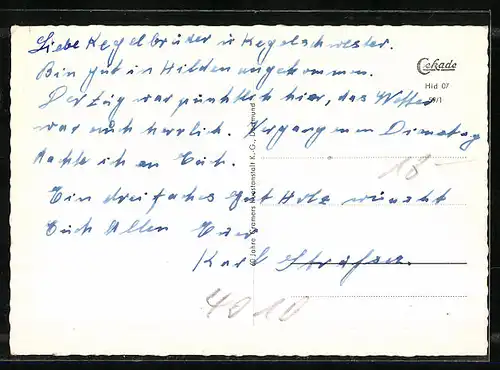 Liebe Kegelbrüder u Kegelschwester.
Bin gut in Hilden angekommen.
Der Zug war pünktlich hier, das Wetter
war auch herrlich. Vergangenen Dienstag
dachte ich an Euch.
Ein dreifaches Gut Holz wünscht
Euch Allen Euer
Karl
Cekade
Hld 07
Jahre Cramers Kunstanstalt K.-G., Dortmund
18-
4010